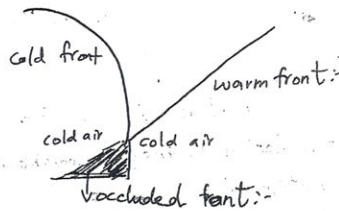 cold front
warm front:-
cold air
cold air
occluded front:-